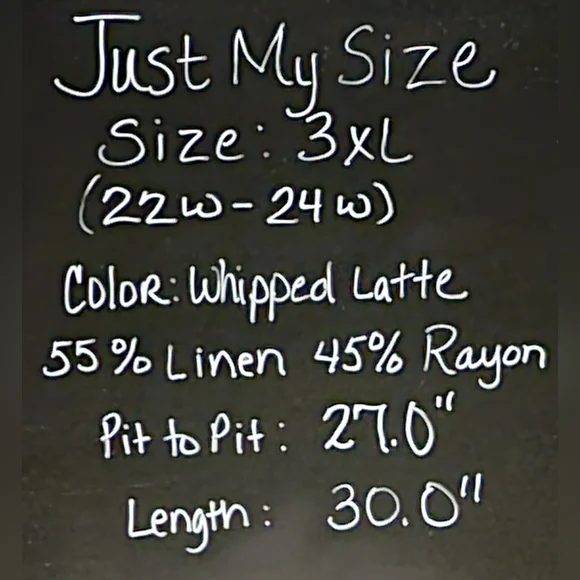 Just My Size
Size: 3XL
(22W-24W)
Color: Whipped Latte
55% Linen 45% Rayon
Pit to Pit: 27.0"
Length: 30.0"